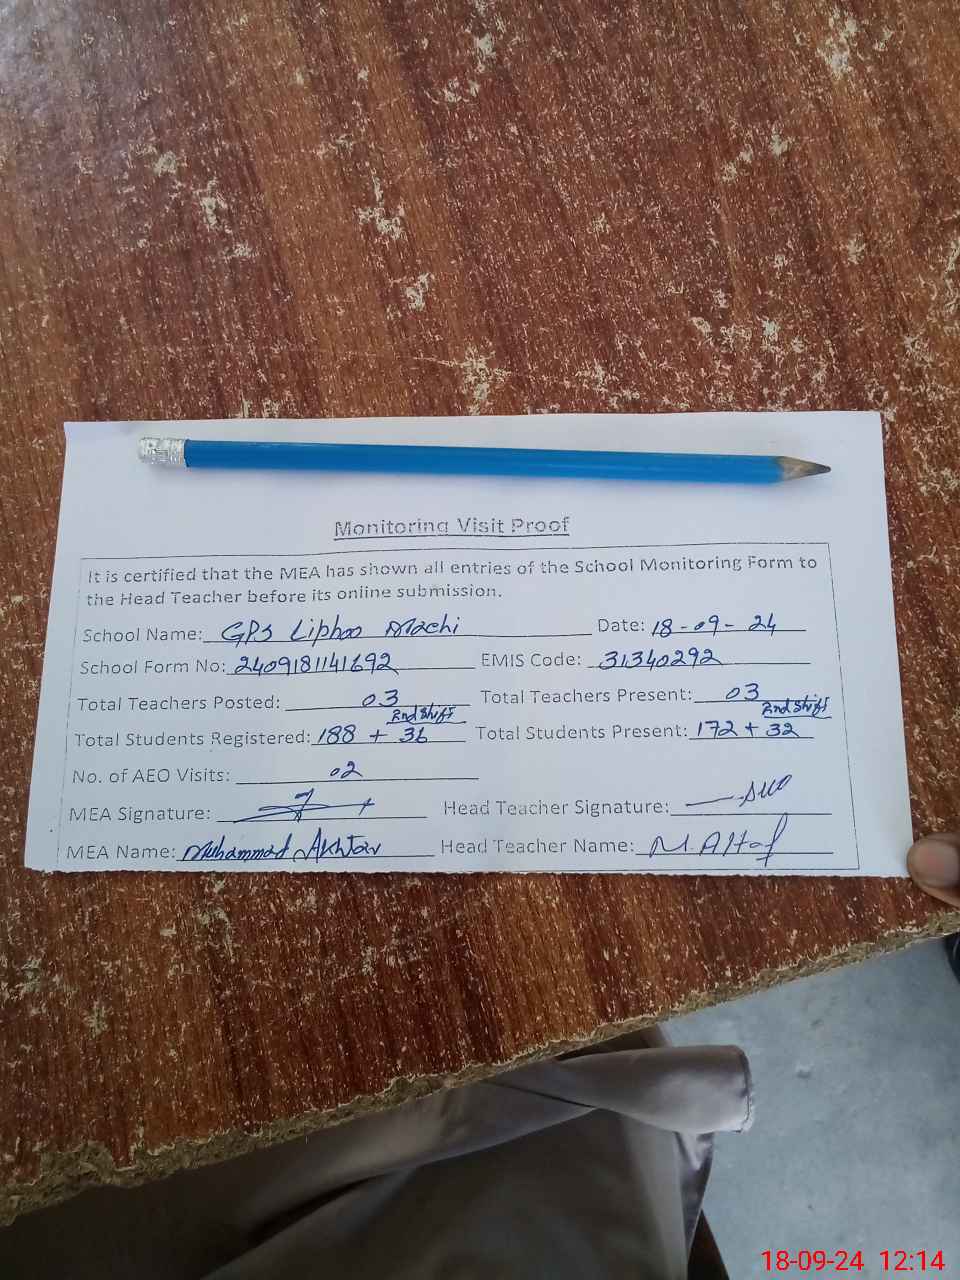 Monitoring Visit Proof
It is certified that the MEA has shown all entries of the School Monitoring Form to
the Head Teacher before its online submission.
School Name: GPS Liphoo Machi Date: 18-09-24
School Form No: 2409181141692 EMIS Code: 31340292
Total Teachers Posted: 03 Total Teachers Present: 03
2nd Shift 2nd Shift
Total Students Registered: 188 + 36 Total Students Present: 172 + 32
No. of AEO Visits: 02
MEA Signature: Head Teacher Signature:
MEA Name: Muhammad Akhtar Head Teacher Name: M. Altaf
18-09-24 12:14